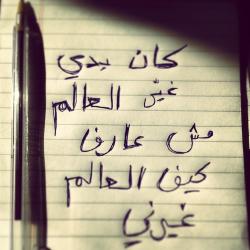 كان بدي
غيّر العالم
مش عارف
كيف العالم
غيرني